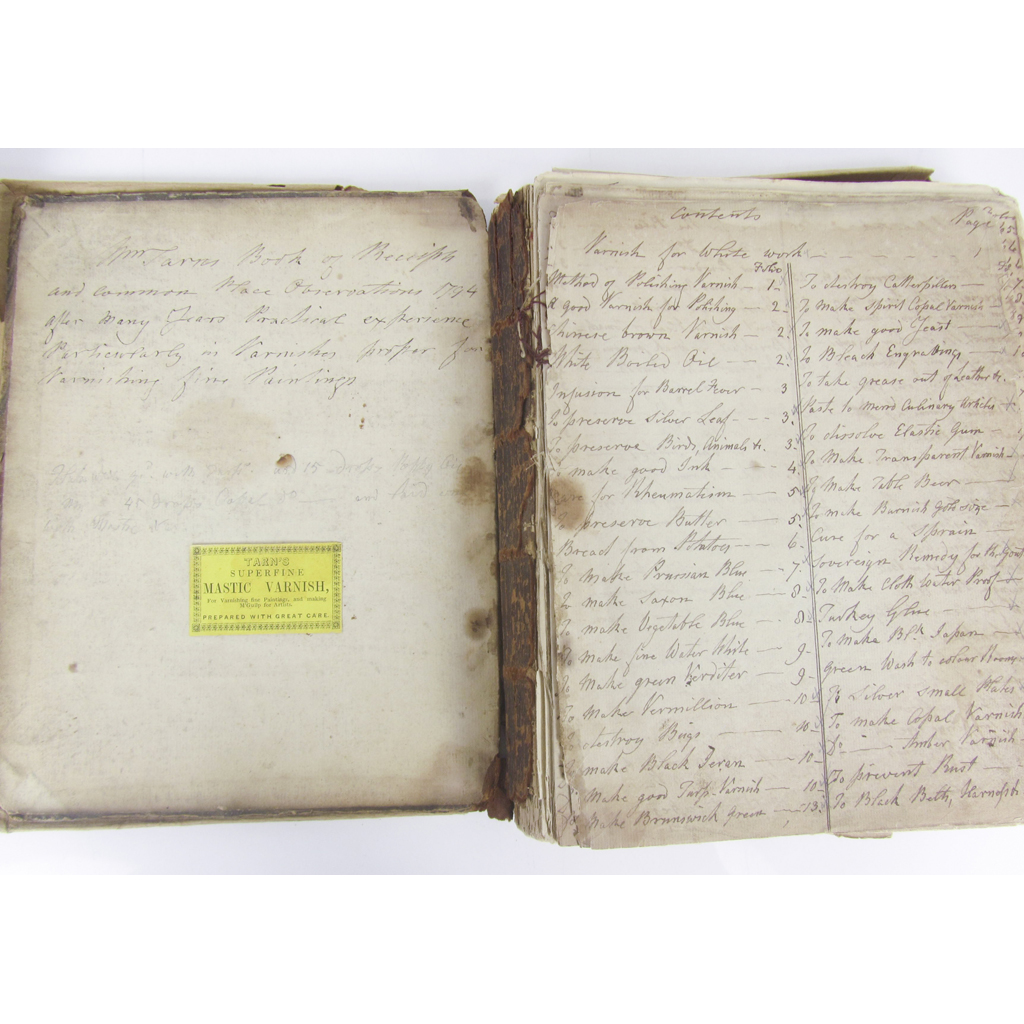 Wm Tarns Book of Receipts
and common Place Observations 1794
after Many Years Practical experience
Particularly in Varnishes proper for
Varnishing fine Paintings
and 15 drops
45 drops
TARN'S
SUPERFINE
MASTIC VARNISH,
For Varnishing fine Paintings, and making
M'Guilp for Artists.
PREPARED WITH GREAT CARE.
Contents
Page
Varnish for White work
Folio
Method of Polishing Varnish — 1
A good Varnish for Polishing — 2
Chinese brown Varnish — 2
White Boiled Oil — 2
Infusion for Barrel Fever — 3
To preserve Silver Leaf — 3
To preserve Birds, Animals &c. 3
To make good Ink — 4
Cure for Rheumatism — 5
To preserve Butter — 5
Bread from Potatoes — 6
To make Prussian Blue — 7
To make Saxon Blue — 8
To make Vegetable Blue — 8
To make fine Water White — 9
To Make green Verditer — 9
To Make Vermillion — 10
To destroy Bugs — 10
To make Black Japan — 10
To Make good Turps Varnish — 10
To Make Brunswick green — 13
To destroy Catterpillers —
To Make Spirit Copal Varnish
To make good Yeast —
To Bleach Engravings
To take grease out of Leather &c.
Paste to mend Culinary Articles
To dissolve Elastic Gum —
To Make Transparent Varnish
To Make Table Beer —
To make Burnish Gold size —
Cure for a Sprain —
Sovereign Remedy for the Gout
To Make Cloth Water Proof
Turkey Glue —
To Make Blk Japan —
Green Wash to colour Rooms
To Silver small Plates
To make Copal Varnish
Do — Amber Varnish
To prevent Rust —
To Black Belts, Harness &c